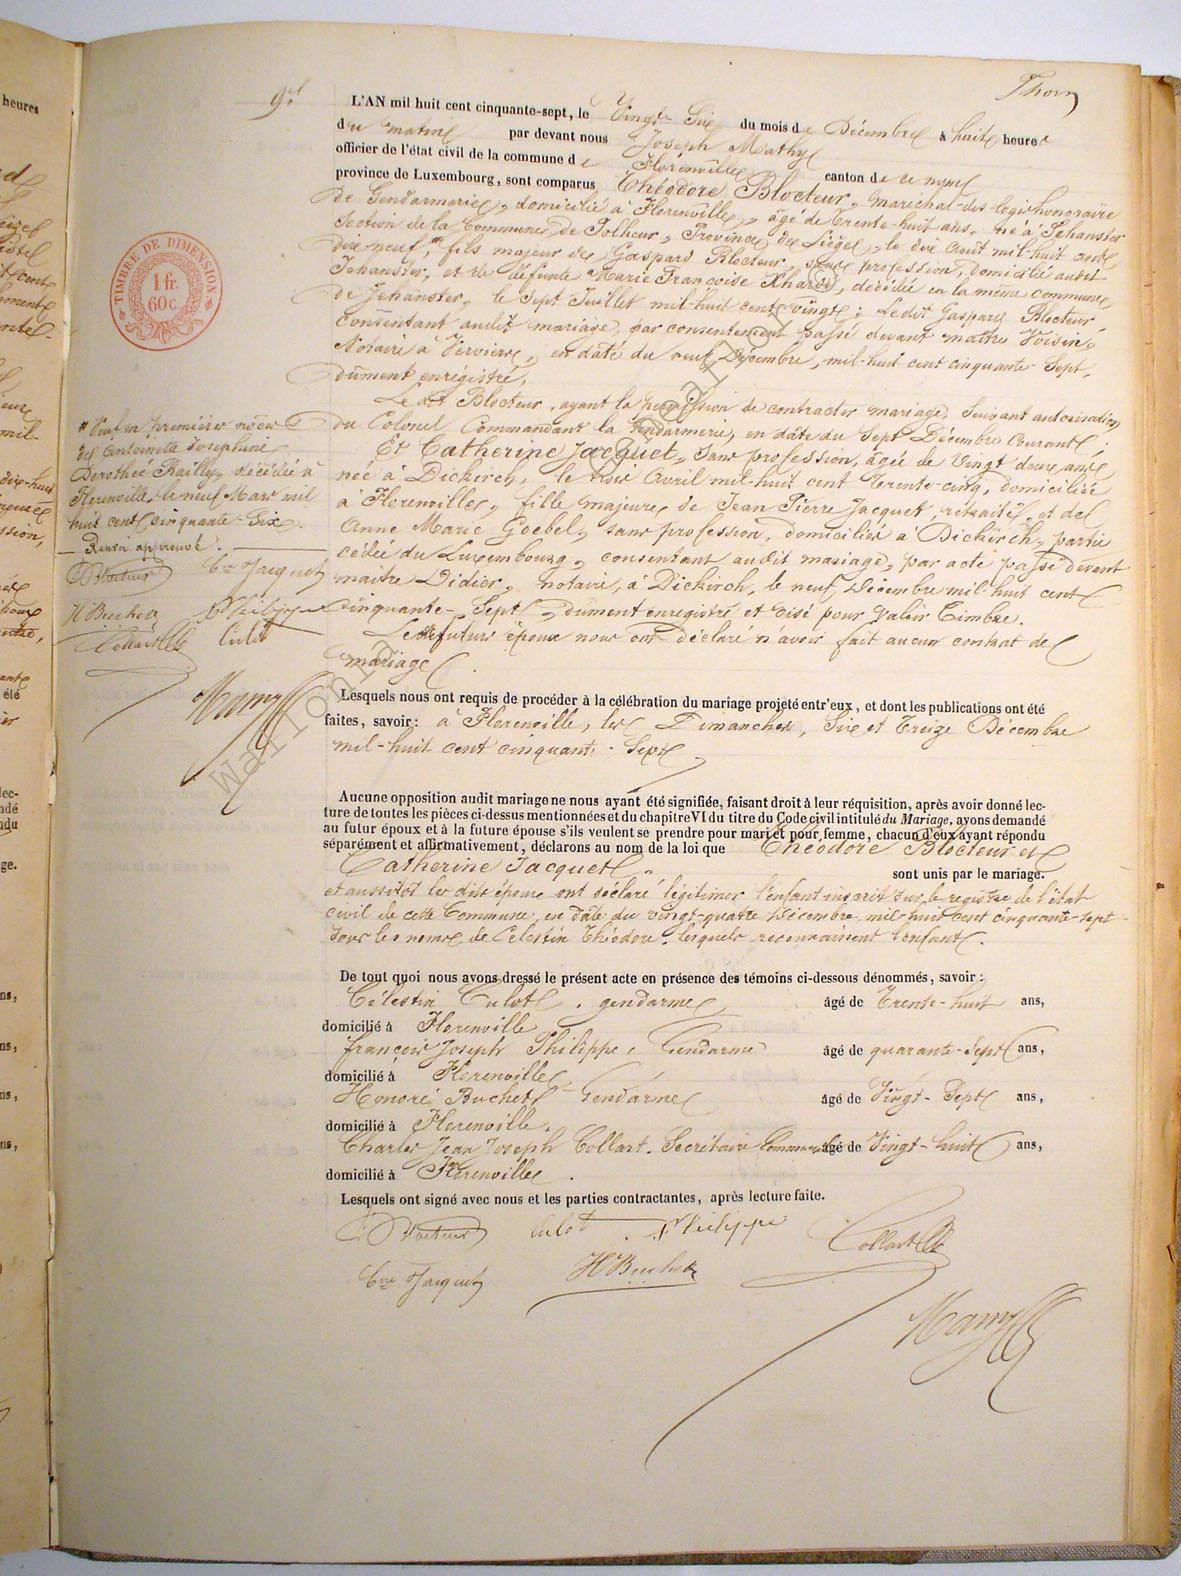 heures
Thory
9e.
L'AN mil huit cent cinquante-sept, le Vingt-Six du mois de Décembre à huit heures
du matin par devant nous Joseph Mathy
officier de l'état civil de la commune de Florenville canton de ce nom
province de Luxembourg, sont comparus Théodore Blocteur, maréchal-des-logis honoraire
de Gendarmerie, domicilié à Florenville, âgé de Trente-huit ans, né à Jehanster
Section de la Commune de Polleur, Province de Liège, le dix août mil-huit cent
dix-neuf, # fils majeur de Gaspard Blocteur, sans profession, domicilié audit
Jehanster, et de défunte Marie Françoise, décédée en la même commune
de Jehanster, le sept Juillet mil-huit cent vingt; Ledit Gaspard Blocteur
consentant audit mariage, par consentement passé devant maître Voisin,
Notaire à Verviers, en date du neuf Décembre, mil-huit cent cinquante-Sept,
dûment enregistré,
Ledit Blocteur, ayant la permission de contracter mariage, suivant autorisation
du Colonel Commandant la Gendarmerie, en date du Sept Décembre Courant;
Et Catherine Jacquet, sans profession, âgée de Vingt deux ans,
née à Dickirch, le trois Avril mil-huit cent Trente-cinq, domiciliée
à Florenville, fille majeure de Jean Pierre Jacquet, retraité, et de
Anne Marie Goebel, sans profession, domiciliés à Dickirch, partie
cédée du Luxembourg, consentant audit mariage, par acte passé devant
maitre Didier, notaire, à Dickirch, le neuf Décembre mil-huit cent
cinquante-Sept, dûment enregistré et visé pour valoir timbre.
Lesdits futurs époux nous ont déclaré n'avoir fait aucun contrat de
mariage.
TIMBRE DE DIMENSION
1 fr.
60 c.
# Veuf en premières noces
de Antoinette Josephine
Dorothée Bailly, décédée à
Florenville, le neuf Mars mil
huit cent cinquante-Six.
Renvoi approuvé.
Blocteur Cne Jacquet
H Buchet Philippe
Collart Culot
Lesquels nous ont requis de procéder à la célébration du mariage projeté entr'eux, et dont les publications ont été
faites, savoir: à Florenville, les Dimanches, Six et Treize Décembre
mil-huit cent cinquante-Sept
Aucune opposition audit mariage ne nous ayant été signifiée, faisant droit à leur réquisition, après avoir donné lec-
ture de toutes les pièces ci-dessus mentionnées et du chapitre VI du titre du Code civil intitulé du Mariage, ayons demandé
au futur époux et à la future épouse s'ils veulent se prendre pour mari et pour femme, chacun d'eux ayant répondu
séparément et affirmativement, déclarons au nom de la loi que Théodore Blocteur et
Catherine Jacquet. sont unis par le mariage.
et aussitôt les dits époux ont déclaré légitimer l'enfant inscrit sur le registre de l'état
civil de cette Commune, en date du vingt-quatre Décembre mil-huit cent cinquante-sept
sous les noms de Celestin Théodore. lesquels reconnaissent l'enfant.
De tout quoi nous avons dressé le présent acte en présence des témoins ci-dessous dénommés, savoir:
Célestin Culot, gendarme âgé de Trente-huit ans,
domicilié à Florenville
françois Joseph Philippe, Gendarme âgé de quarante-Sept ans,
domicilié à Florenville
Honoré Buchet Gendarme âgé de Vingt-Sept ans,
domicilié à Florenville.
Charles Jean Joseph Collart. Secrétaire Communal âgé de Vingt-huit ans,
domicilié à Florenville.
Lesquels ont signé avec nous et les parties contractantes, après lecture faite.
Blocteur Culot Philippe Collart
Cne Jacquet H Buchet